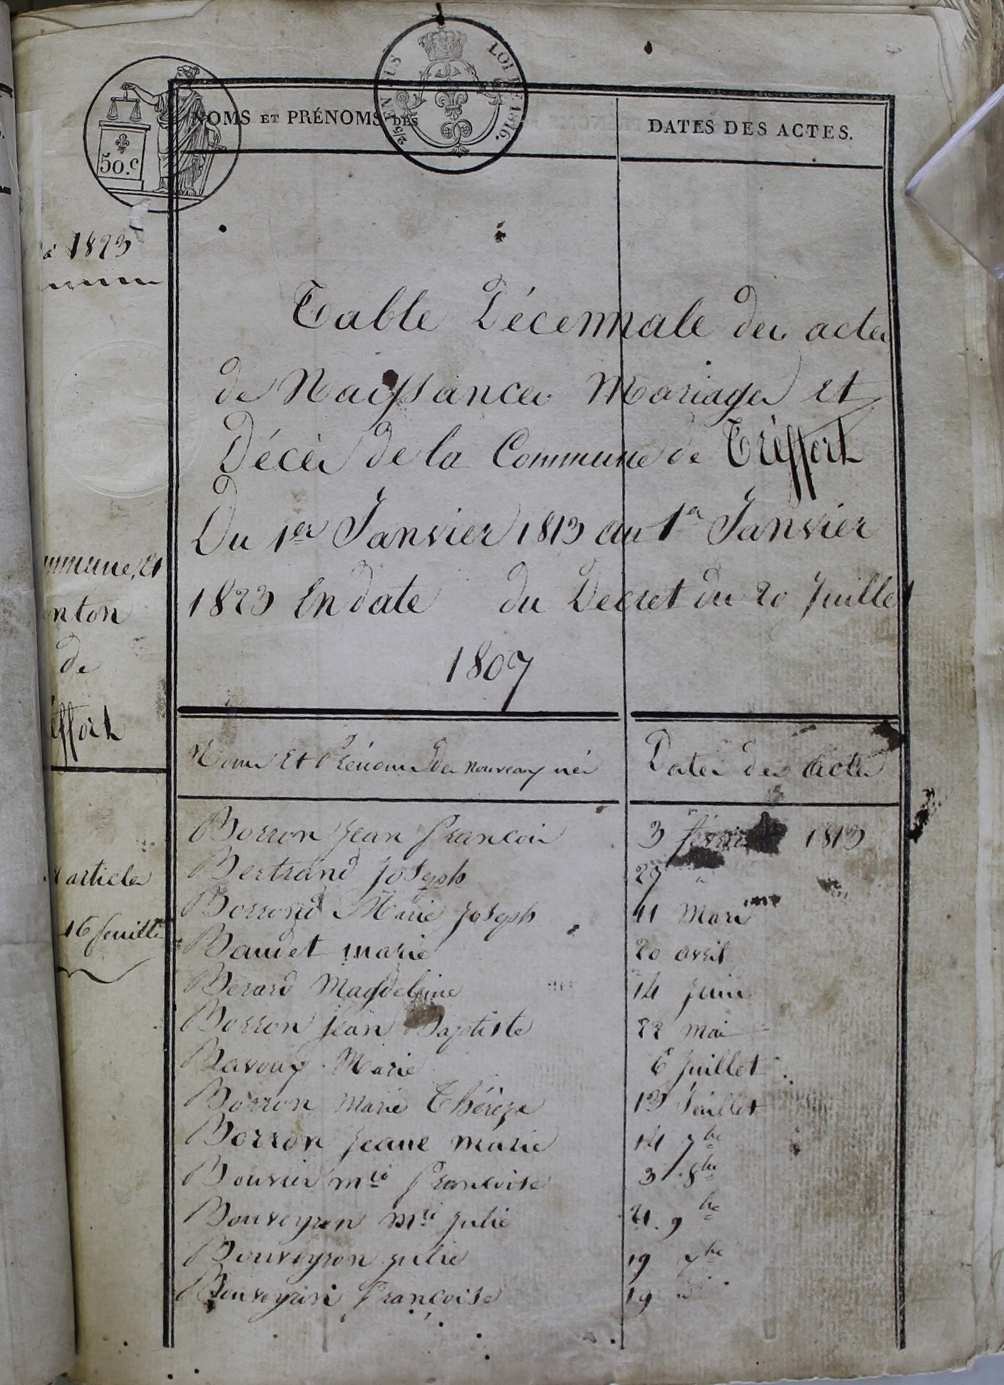 NOMS ET PRÉNOMS DES
DATES DES ACTES.
50.c
LOI DE 1816.
1823
Table Décennale des actes
de Naissances Mariages et
Décès de la Commune de Tréffort
Du 1er Janvier 1813 au 1er Janvier
1823 En date du Decret du 20 Juillet
1807
Noms Et Prénoms des nouveaux nés
Dates des actes
Borron Jean François 3 février 1813
Bertrand Joseph 27 "
Borrond Marie Joseph 11 Mars
Baudet marie 20 avril
Berard Magdeleine 14 Juin
Borron Jean Baptiste 22 mai
Bavoux Marie 6 Juillet
Borron Marie Thérèze 13 Juillet
Borron Jeane marie 14 7bre
Bouvier mie Françoise 3 8bre
Bouveyron mie Julie 21 9bre
Bouveyron Julie 19 xbre
Bouveyron Françoise 19 id
mmune, et
nton
de
ffort
articles
16 feuillets